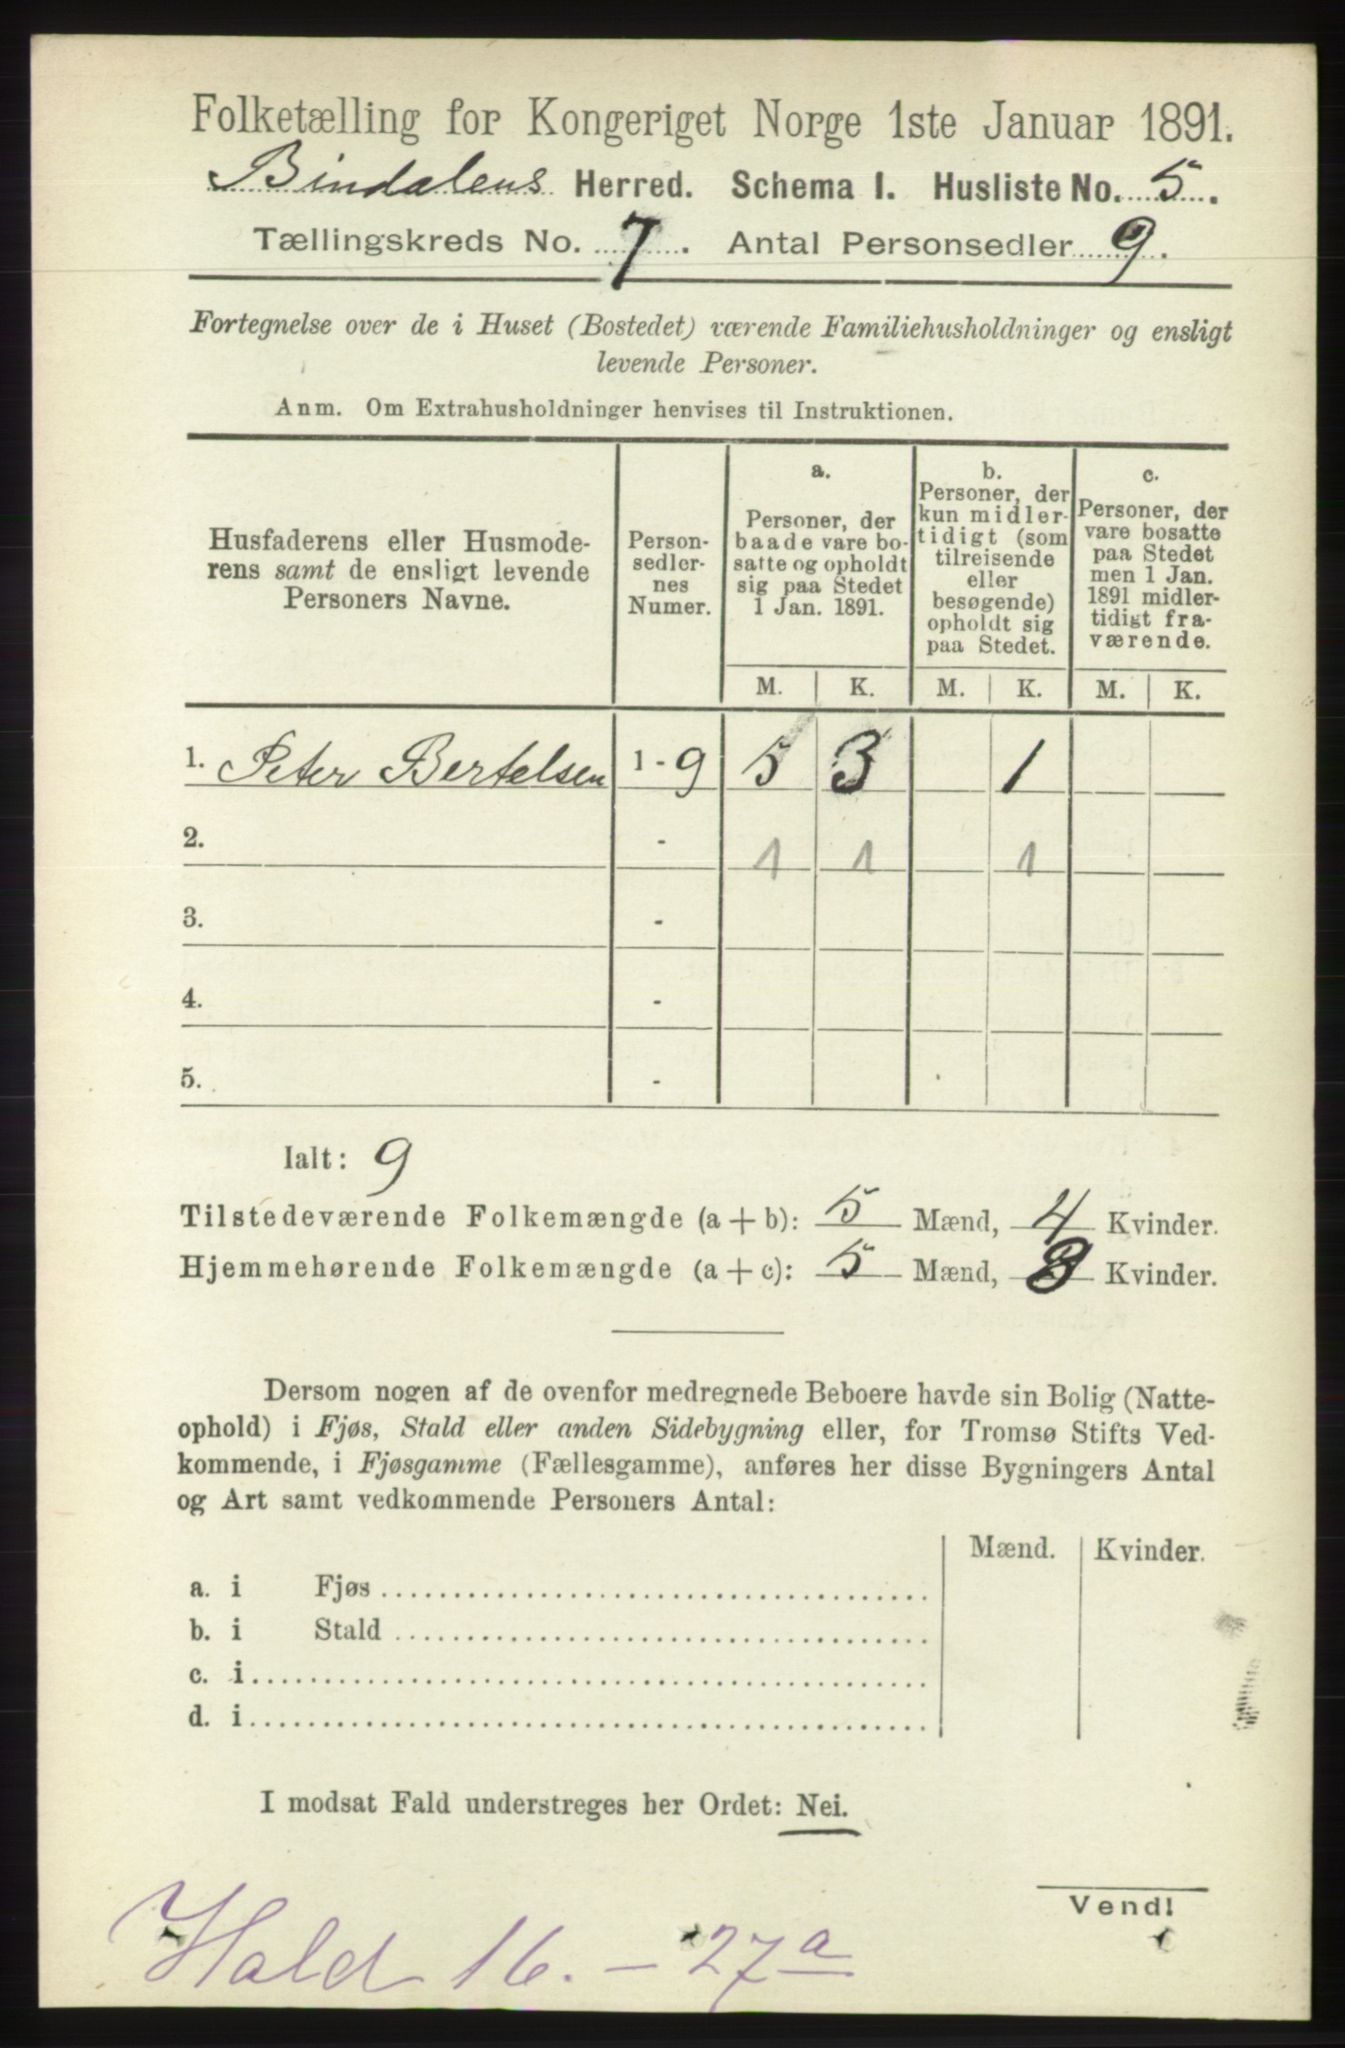 Folketælling for Kongeriget Norge 1ste Januar 1891.
Bindalens Herred. Schema I. Husliste No. 5.
Tællingskreds No. 7. Antal Personsedler 9.
Fortegnelse over de i Huset (Bostedet) værende Familiehusholdninger og ensligt
levende Personer.
Anm. Om Extrahusholdninger henvises til Instruktionen.
Husfaderens eller Husmode-
rens samt de ensligt levende
Personers Navne.
Person-
sedler-
nes
Numer.
a.
Personer, der
baade vare bo-
satte og opholdt
sig paa Stedet
1 Jan. 1891.
b.
Personer, der
kun midler-
tidigt (som
tilreisende
eller
besøgende)
opholdt sig
paa Stedet.
c.
Personer, der
vare bosatte
paa Stedet
men 1 Jan.
1891 midler-
tidigt fra-
værende.
M. K. M. K. M. K.
1. Peter Bertelsen 1-9 5 3 1
2. - 1 1 1
3. -
4. -
5. -
Ialt: 9
Tilstedeværende Folkemængde (a+b): 5 Mænd, 4 Kvinder.
Hjemmehørende Folkemængde (a+c): 5 Mænd, 3 Kvinder.
Dersom nogen af de ovenfor medregnede Beboere havde sin Bolig (Natte-
ophold) i Fjøs, Stald eller anden Sidebygning eller, for Tromsø Stifts Ved-
kommende, i Fjøsgamme (Fællesgamme), anføres her disse Bygningers Antal
og Art samt vedkommende Personers Antal:
Mænd. Kvinder.
a. i Fjøs
b. i Stald
c. i
d. i
I modsat Fald understreges her Ordet: Nei.
Vend!
Hald 16. - 27a